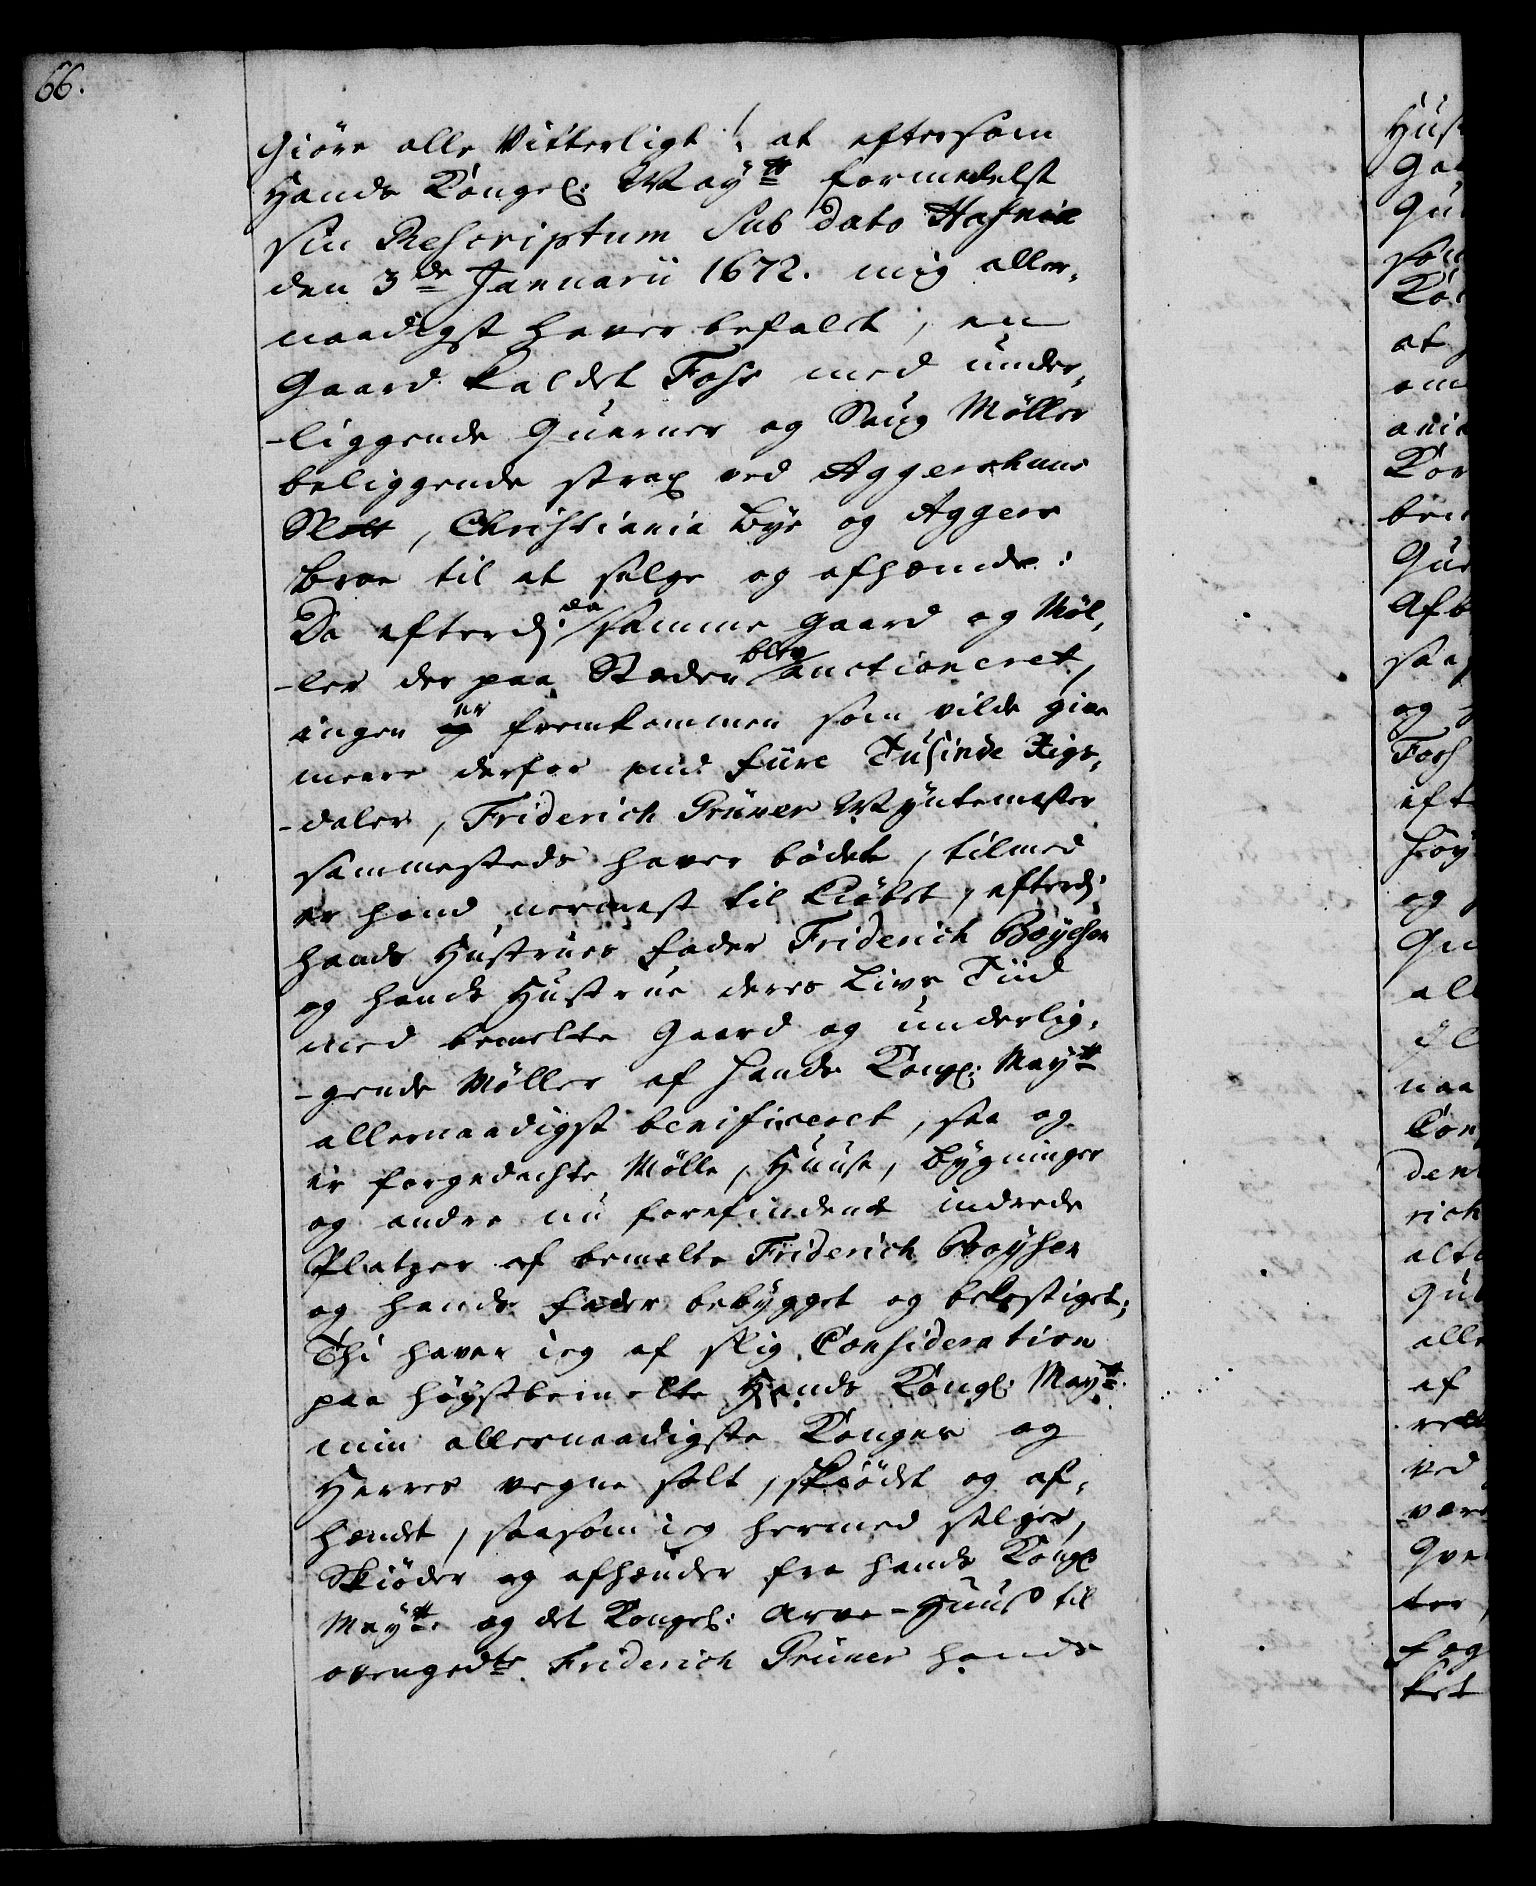 66.
Giöre alle Vitterligt! at eftersom
Hands Kongel: Maÿtt formedelst
sin Rescriptum Sub dato Hafniæ
den 3de Januarii 1672. mig aller-
naadigst haver befalet, en
Gaard kaldet Foss med under-
-liggende Quarner og Saug Møller
beliggende strax ved Aggershuus
Slott, Christiania Bye og Aggers
Broe til at selge og afhænde:
Da efterdj da samme Gaard og Møl-
-ler der paa Stæden blev auctioneret,
ingen er fremkommen som vilde give
meere derfor end fiire Tusinde Rigs-
-daler, Friderich Grüner Myntemester
sammesteds haver bödet, tilmed
er hand nermest til Kiöbet, efterdj
hands Hustrues Fader Friderich Böÿesen
og hands Hustrue deres Livs Tiid
med bemelte Gaard og underlig-
-gende Møller af Hands Kongl: Maÿtt
allernaadigst benificeret, saa og
er forgedachte Mølle, Huuse, Bygninger
og andre nu forefindende indrede
Platzer af bemelte Friderich Boÿsen
og hands Fader bebygget og bekostiget;
Thi haver ieg af slig Consideration
paa høystbemelte Hands Kongl: Maÿtt
min allernaadigste Konges og
Herres vegne solt, skiödet og af-
hændet, saasom ieg hermed selger,
Skiöder og afhænder fra hands Kongl
Maÿtt. og det Kongel: Arve-Huus til
ovengedte Friderich Grüner hands